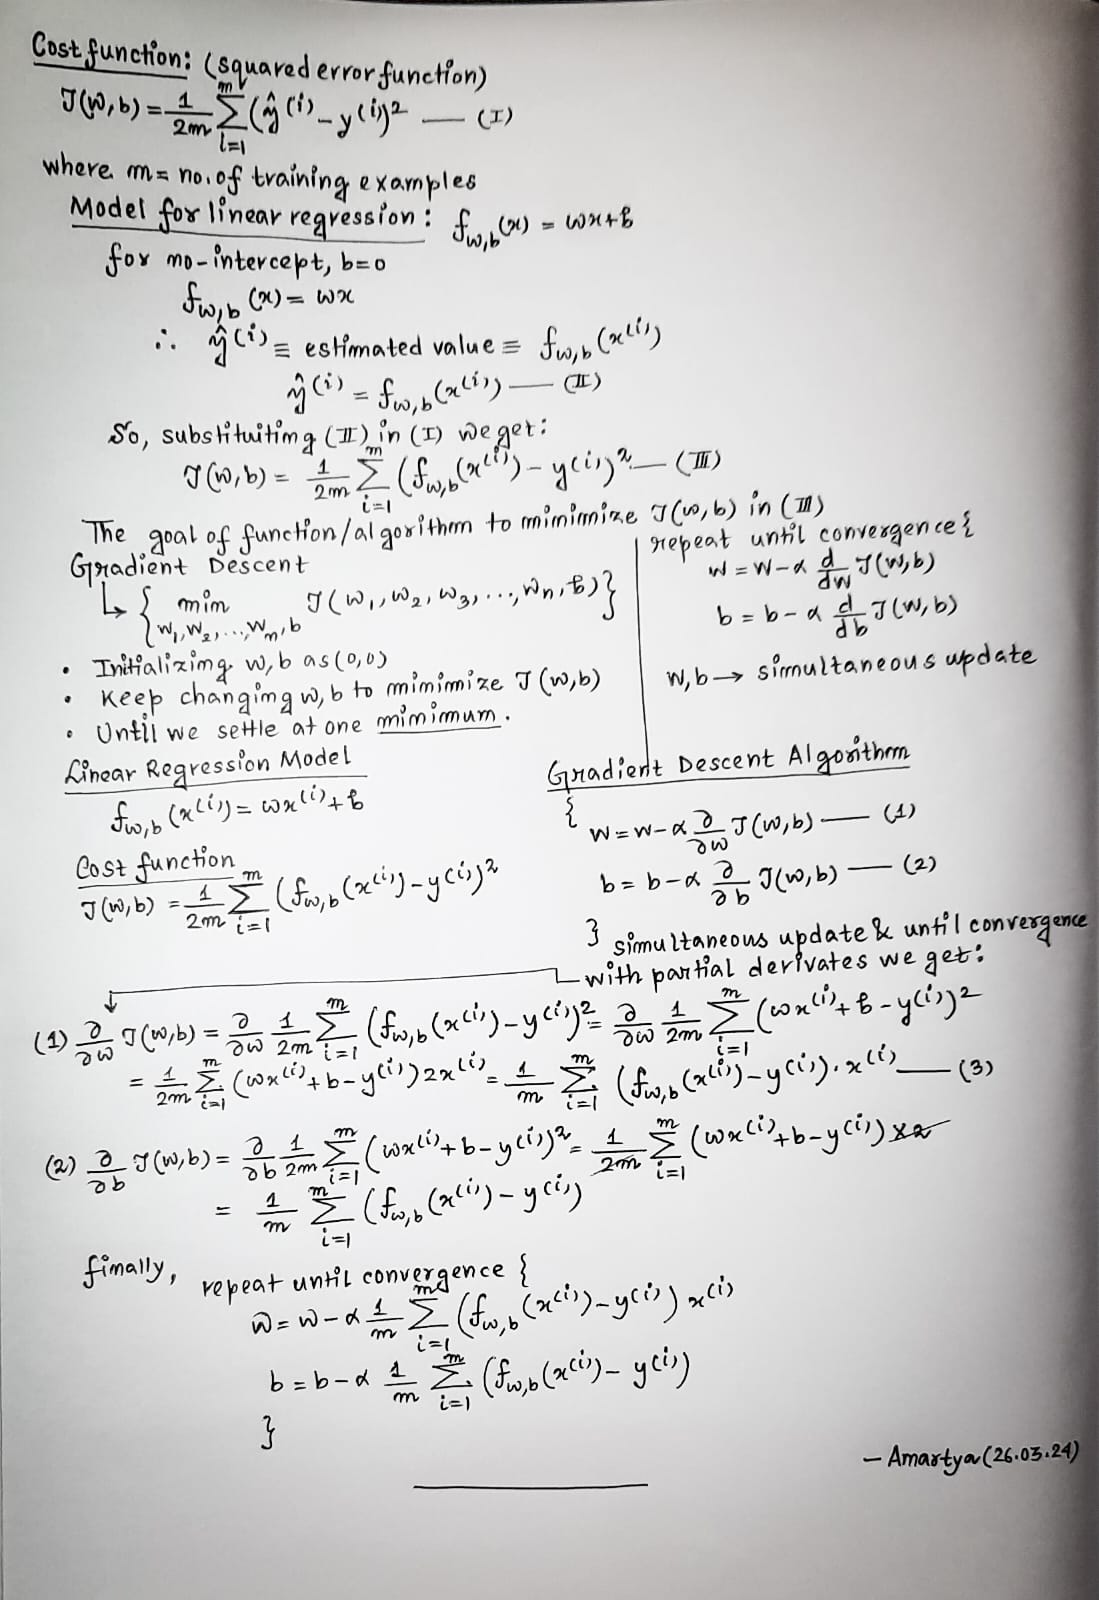 Cost function: (squared error function)
J(w,b) = 1/2m m∑i=1 (ŷ(i) - y(i))² — (I)
where m = no. of training examples
Model for linear regression: fw,b(x) = wx+b
for no-intercept, b=0
fw,b(x) = wx
∴ ŷ(i) ≡ estimated value ≡ fw,b(x(i))
ŷ(i) = fw,b(x(i)) — (II)
So, substituiting (II) in (I) we get:
J(w,b) = 1/2m m∑i=1 (fw,b(x(i)) - y(i))² — (III)
The goal of function/algorithm to minimize J(w,b) in (III)
Gradient Descent
↳ { min w1,w2,...,wn,b J(w1,w2,w3,...,wn,b) }
• Initializing w,b as (0,0)
• Keep changing w,b to minimize J(w,b)
• Until we settle at one minimum.
repeat until convergence {
w = w-α d/dw J(w,b)
b = b-α d/db J(w,b)
w,b → simultaneous update
Linear Regression Model
fw,b(x(i)) = wx(i)+b
Cost function
J(w,b) = 1/2m m∑i=1 (fw,b(x(i)) - y(i))²
Gradient Descent Algorithm
{
w = w-α ∂/∂w J(w,b) — (1)
b = b-α ∂/∂b J(w,b) — (2)
} simultaneous update & until convergence
with partial derivates we get:
(1) ∂/∂w J(w,b) = ∂/∂w 1/2m m∑i=1 (fw,b(x(i)) - y(i))² = ∂/∂w 1/2m m∑i=1 (wx(i)+b-y(i))²
= 1/2m m∑i=1 (wx(i)+b-y(i)) 2x(i) = 1/m m∑i=1 (fw,b(x(i)) - y(i)).x(i) — (3)
(2) ∂/∂b J(w,b) = ∂/∂b 1/2m m∑i=1 (wx(i)+b-y(i))² = 1/2m m∑i=1 (wx(i)+b-y(i)) x2
= 1/m m∑i=1 (fw,b(x(i)) - y(i))
finally, repeat until convergence {
w = w-α 1/m m∑i=1 (fw,b(x(i)) - y(i)) x(i)
b = b-α 1/m m∑i=1 (fw,b(x(i)) - y(i))
}
— Amartya (26.03.24)